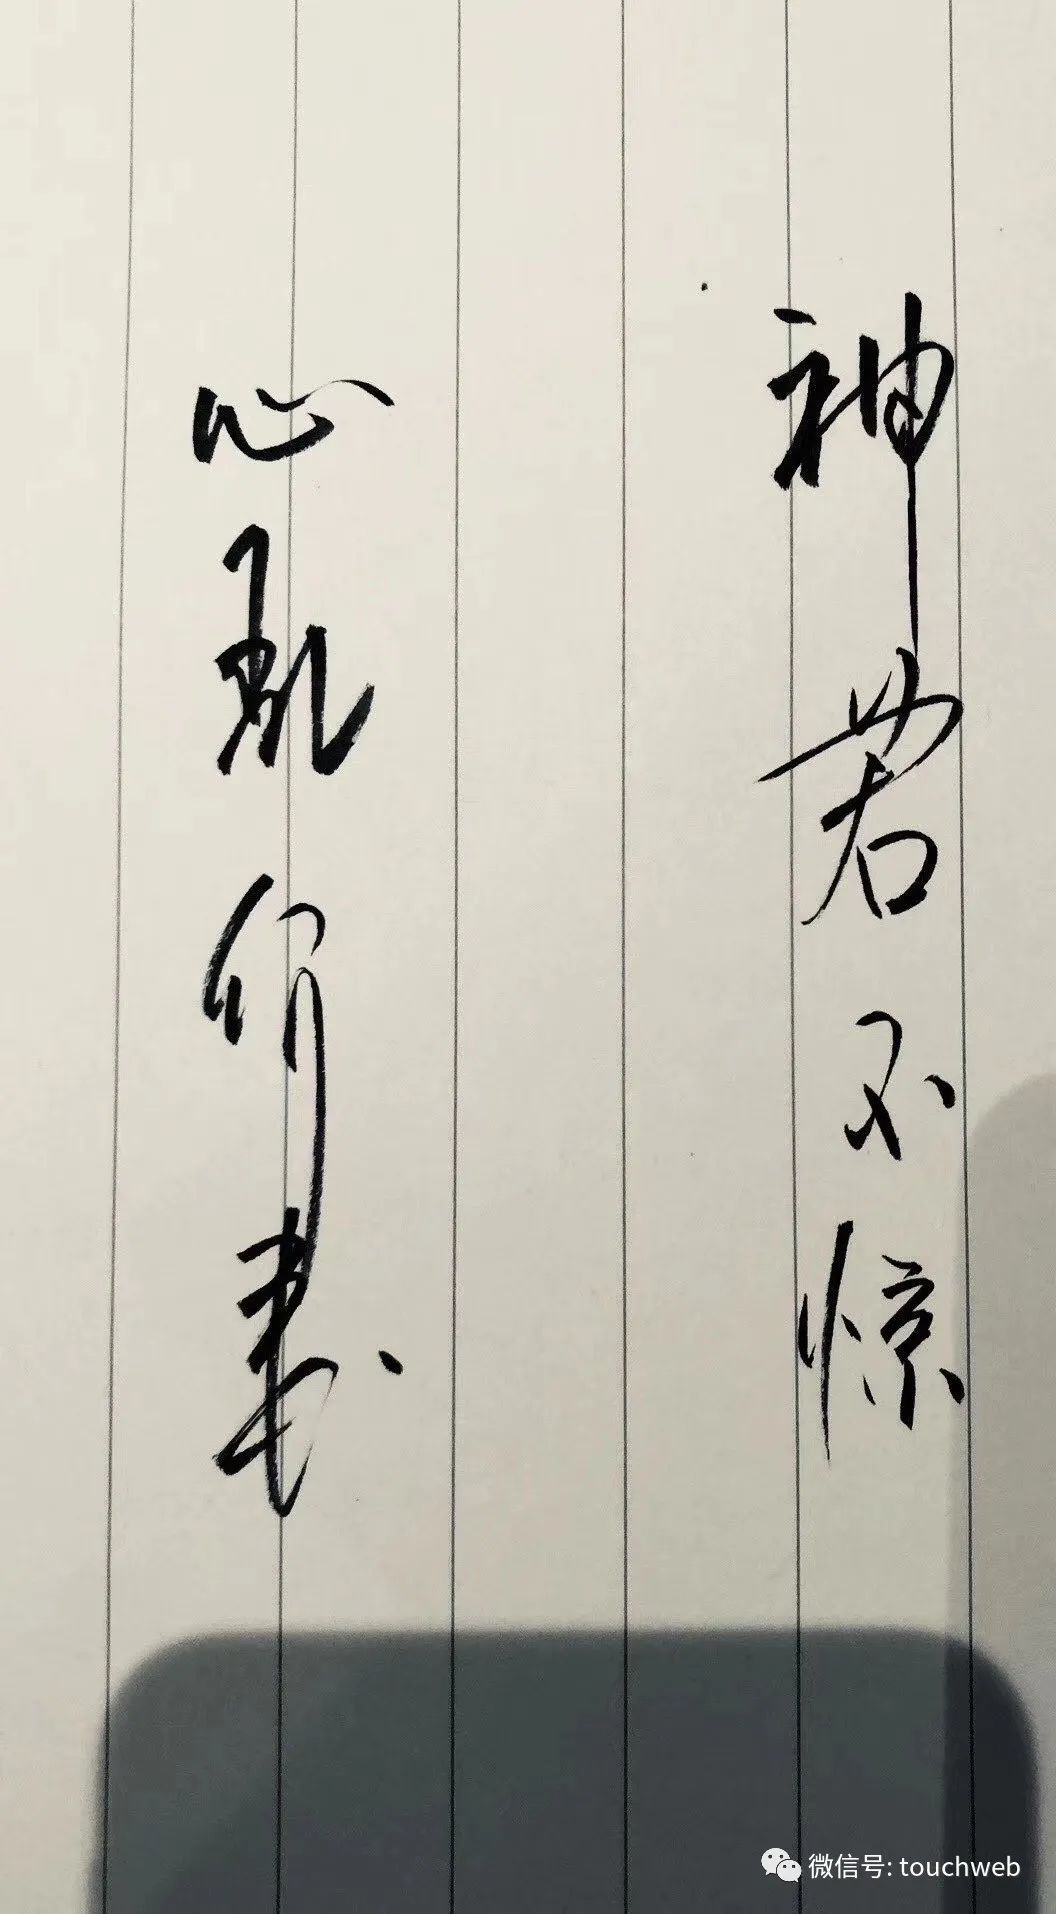 神若不惊
心乱何
微信号: touchweb